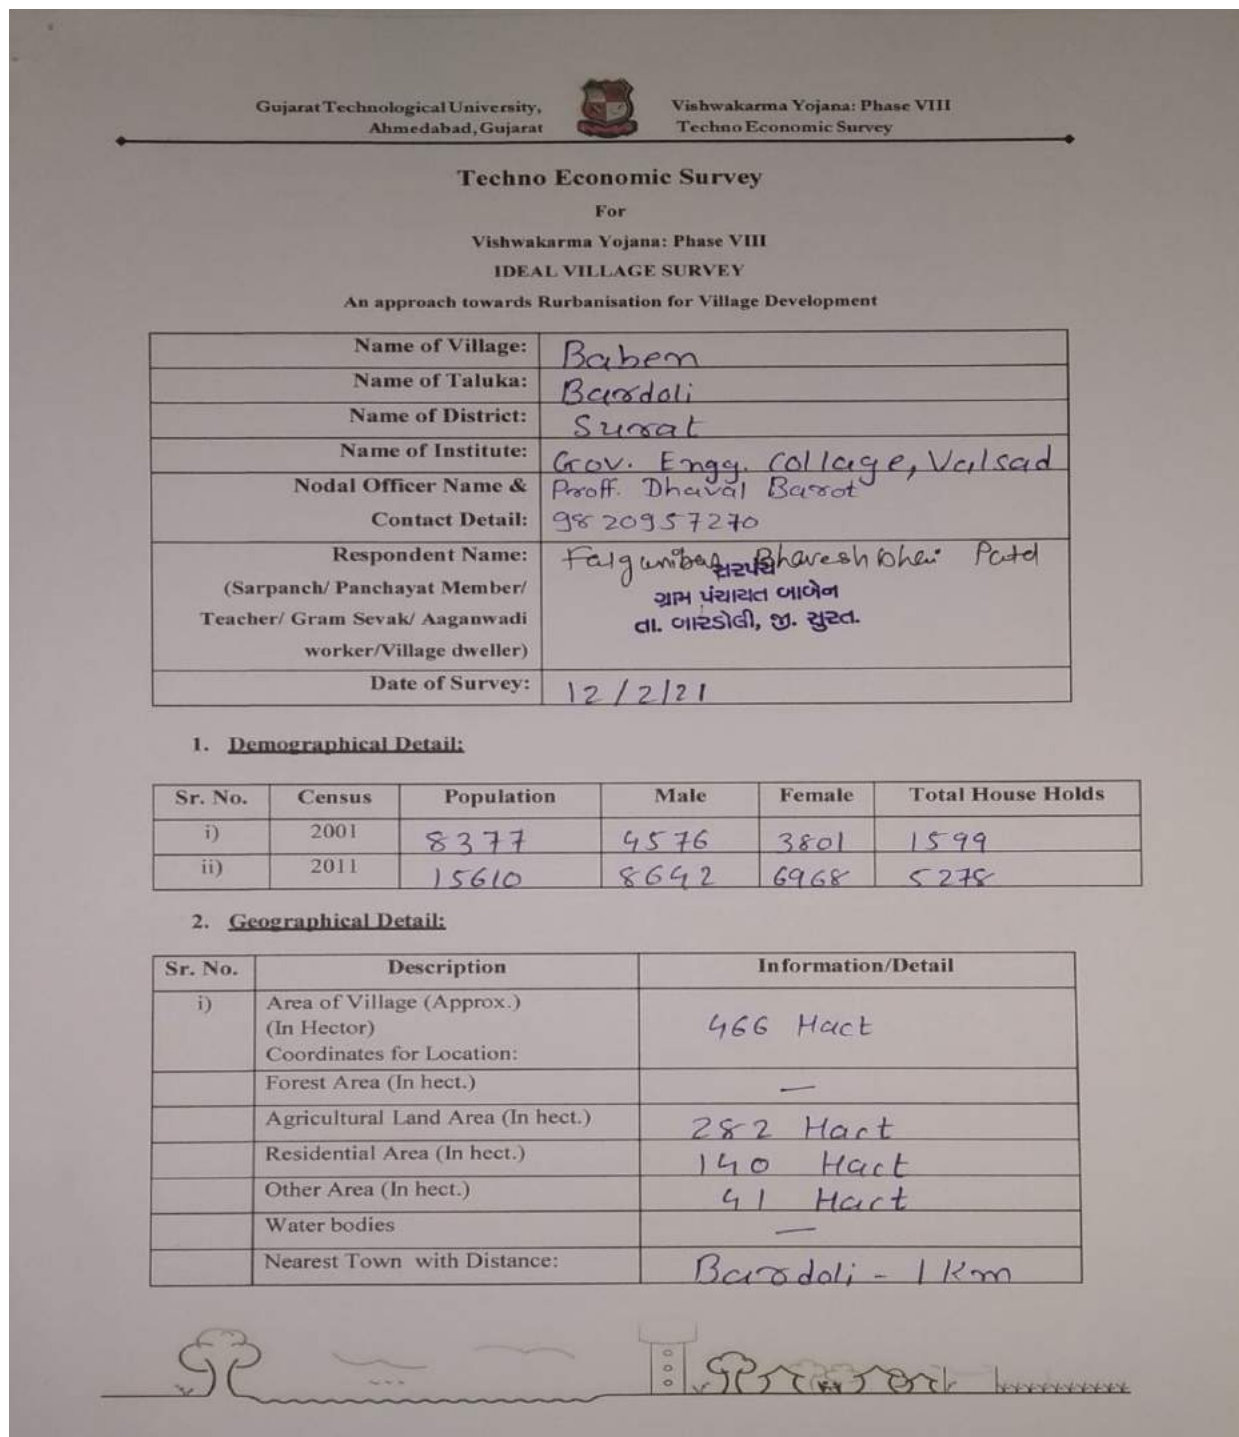 Gujarat Technological University,
Ahmedabad, Gujarat
Vishwakarma Yojana: Phase VIII
Techno Economic Survey
Techno Economic Survey
For
Vishwakarma Yojana: Phase VIII
IDEAL VILLAGE SURVEY
An approach towards Rurbanisation for Village Development
Name of Village: Baben
Name of Taluka: Bardoli
Name of District: Surat
Name of Institute: Gov. Engg. Collage, Valsad
Nodal Officer Name & Proff. Dhaval Barot
Contact Detail: 9820957270
Respondent Name: Bhaveshbhai Patel
સરપંચ
(Sarpanch/ Panchayat Member/ ગ્રામ પંચાયત બાબેન
Teacher/ Gram Sevak/ Aaganwadi તા. બારડોલી, જી. સુરત.
worker/Village dweller)
Date of Survey: 12/2/21
1. Demographical Detail:
Sr. No. Census Population Male Female Total House Holds
i) 2001 8377 4576 3801 1599
ii) 2011 15610 8642 6968 5278
2. Geographical Detail:
Sr. No. Description Information/Detail
i) Area of Village (Approx.)
(In Hector) 466 Hact
Coordinates for Location:
Forest Area (In hect.) —
Agricultural Land Area (In hect.) 282 Hact
Residential Area (In hect.) 140 Hact
Other Area (In hect.) 41 Hact
Water bodies —
Nearest Town with Distance: Bardoli - 1 Km